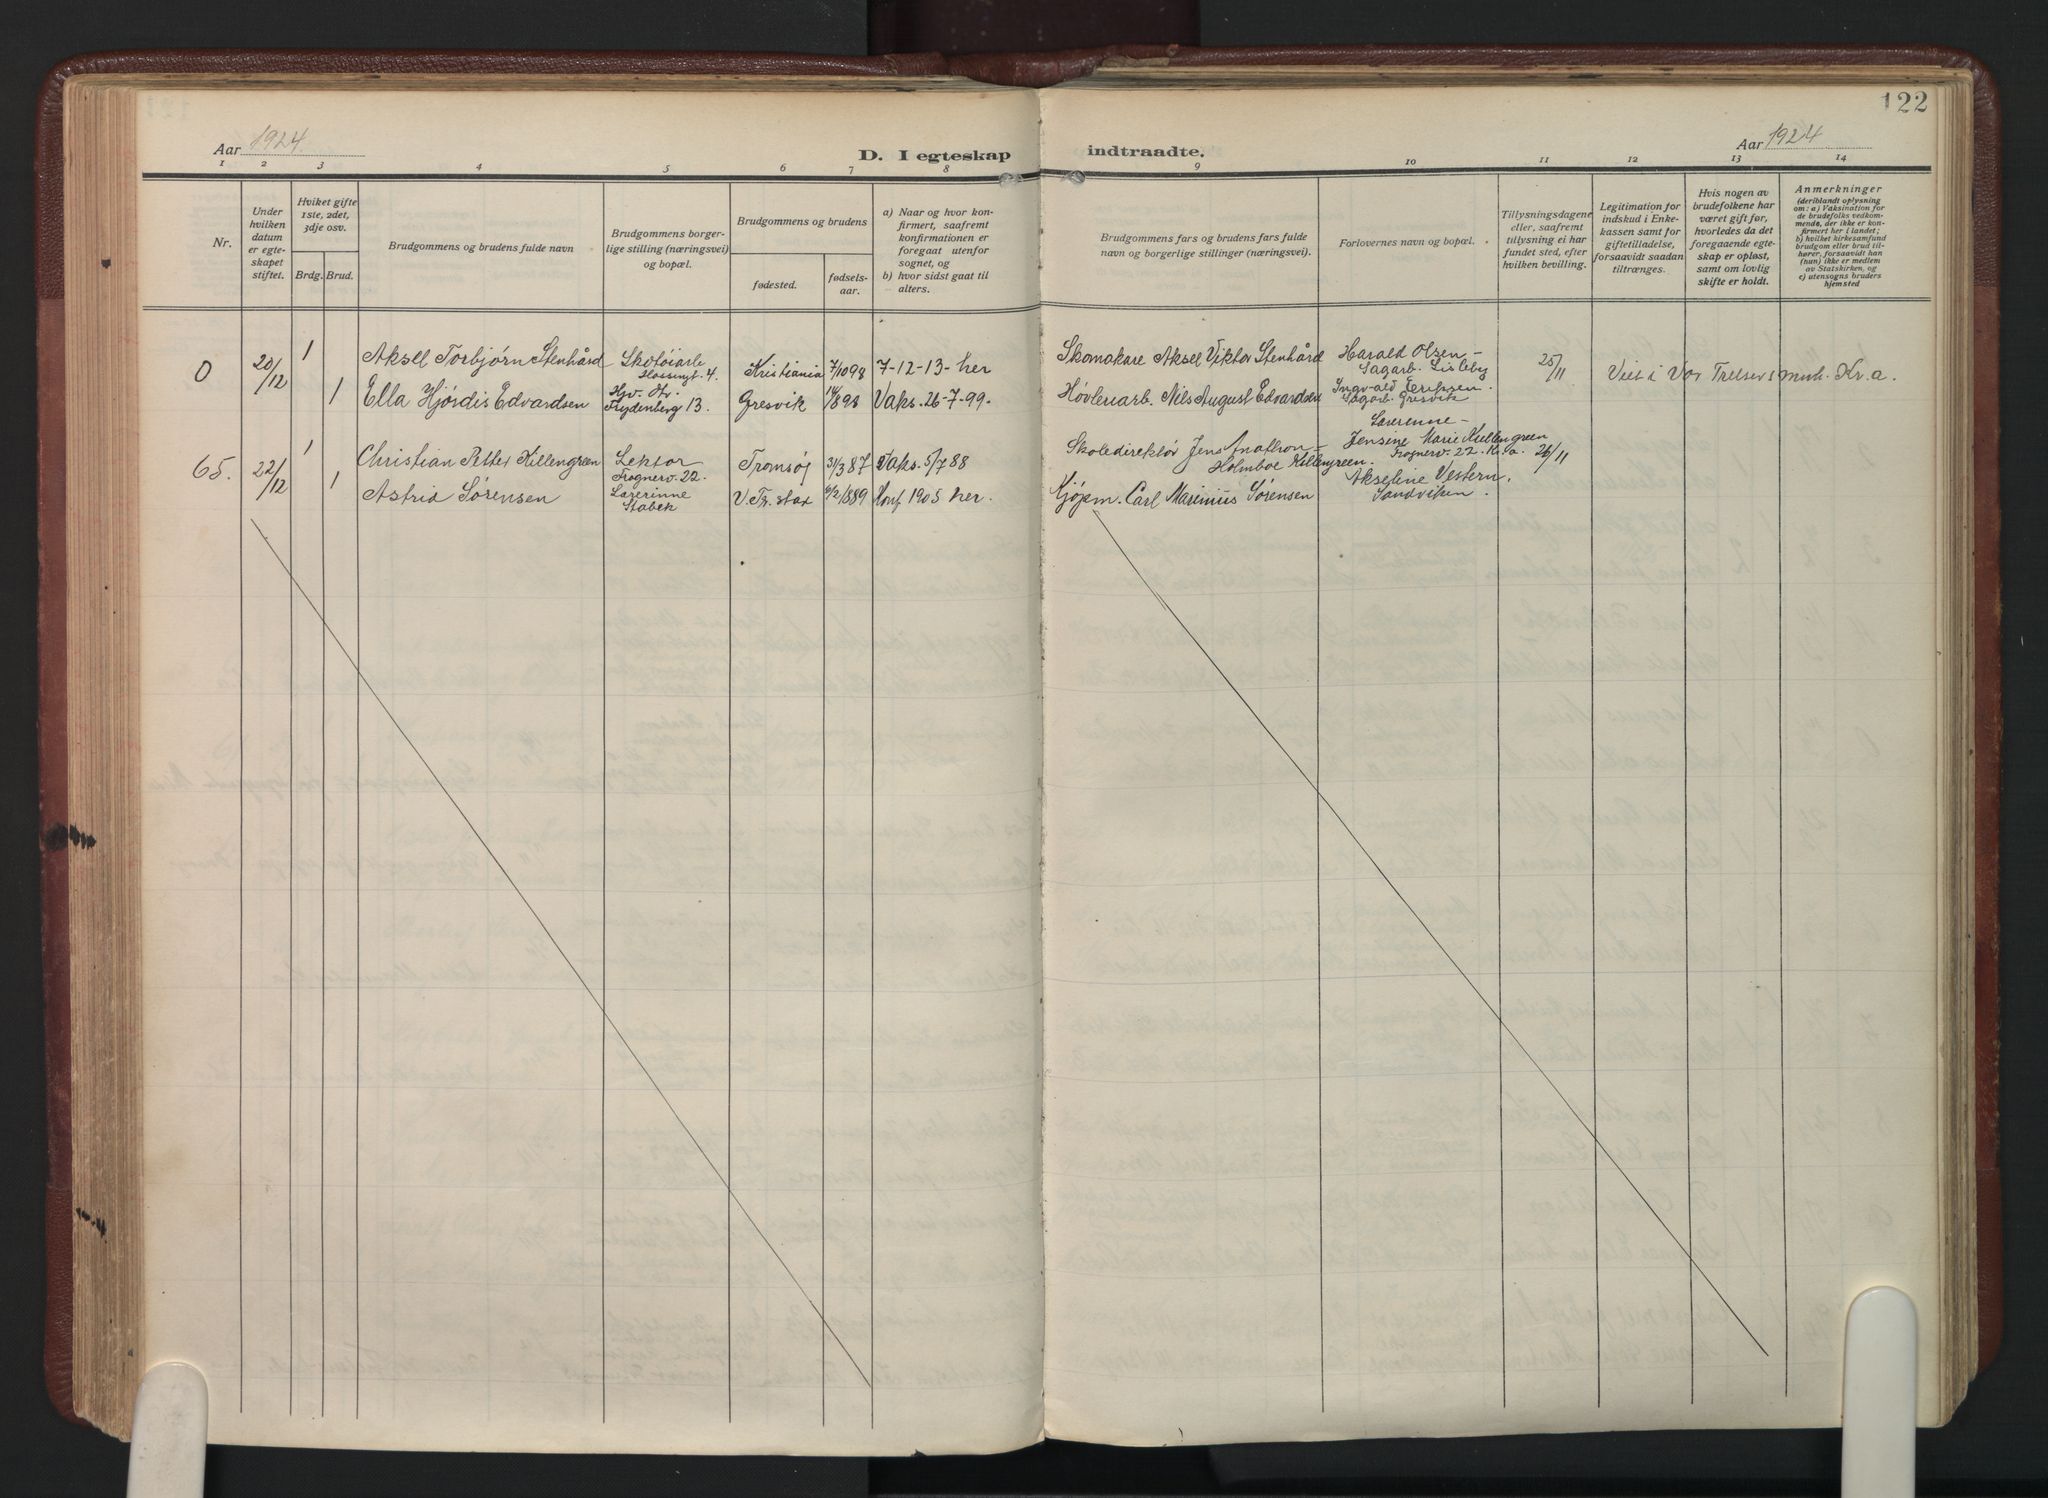 122
Aar 1924
D. I egteskap indtraadte.
Aar 1924
1 2 3 4 5 6 7 8 9 10 11 12 13 14
Nr.
Under hvilken datum er egteskapet stiftet.
Hviket gifte 1ste, 2det, 3dje osv.
Brdg. Brud.
Brudgommens og brudens fulde navn
Brudgommens borgerlige stilling (næringsvei) og bopæl.
Brudgommens og brudens
fødested. fødselsaar.
a) Naar og hvor konfirmert, saafremt konfirmationen er foregaat utenfor sognet, og
b) hvor sidst gaat til alters.
Brudgommens fars og brudens fars fulde navn og borgerlige stillinger (næringsvei).
Forlovernes navn og bopæl.
Tillysningsdagene eller, saafremt tillysning ei har fundet sted, efter hvilken bevilling.
Legitimation for indskud i Enkekassen samt for giftetilladelse, forsaavidt saadan tiltrænges.
Hvis nogen av brudefolkene har været gift før, hvorledes da det foregaaende egteskap er opløst, samt om lovlig skifte er holdt.
Anmerkninger (deriblandt oplysning om: a) Vaksination for de brudefolks vedkommende, der ikke er konfirmert her i landet; b) hvilket kirkesamfund brudgom eller brud tilhører, forsaavidt han (hun) ikke er medlem av Statskirken, og c) utensogns bruders hjemsted
0 20/12 1 Aksel Torbjørn Stenhård Skotøiarb. 4. Kristiania 7/10 98 7-12-13-her Skomakare Aksel Viktor Stenhård Harald Olsen - Sagarb. Lisleby 25/11 Viet i Vor Frelsers menh. Kr.a.
1 Ella Hjørdis Edvardsen Frydenberg 13. Gresvik 1898 Vaks. 26-7-99. Høvleriarb. Nils August Edvardsen Ingvald Eriksen. Sagarb. Gresvik
65. 22/12 1 Christian Petter Killengreen Lektor Frognerv. 22. Tromsø 31/3 87 Vaks. 5/7 88 Skoledirektør Jens - Holmboe Killengreen. Lærerinne - Jensine Marie Killengreen Frognerv. 22. Kr.a. 26/11
1 Astrid Sørensen Lærerinne Stabek 6/2 1889 Konf 1905 her. Kjøpm. Carl Marinius Sørensen Akseline Vestern. Sandviken.